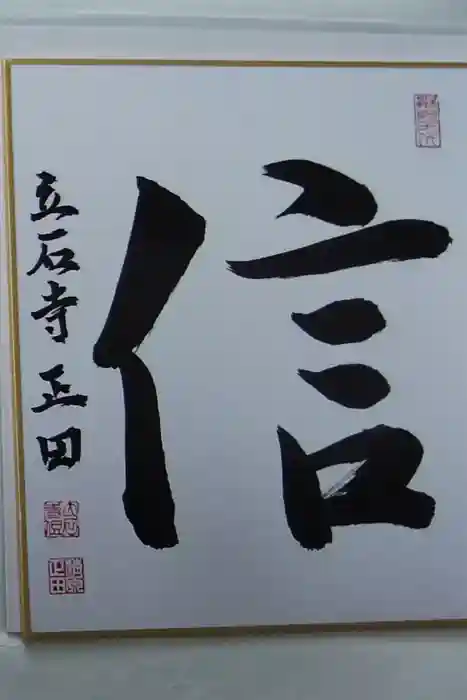 信
立石寺 正田